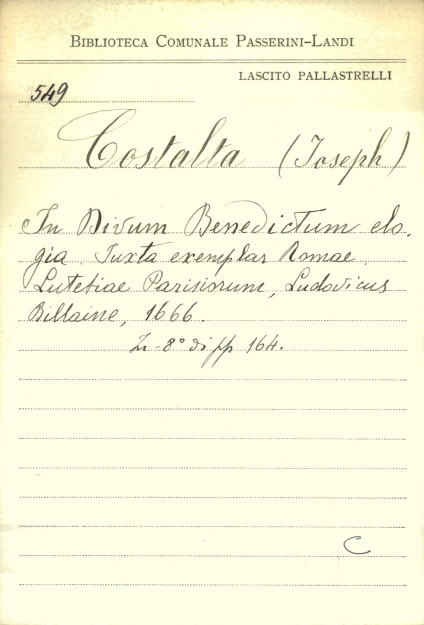 BIBLIOTECA COMUNALE PASSERINI-LANDI
LASCITO PALLASTRELLI
549
Costalta (Joseph)
In Divum Benedictum elo-
gia. Juxta exemplar Romae.
Lutetiae Parisiorum, Ludovicus
Billaine, 1666.
In-8° di pp 164.
C